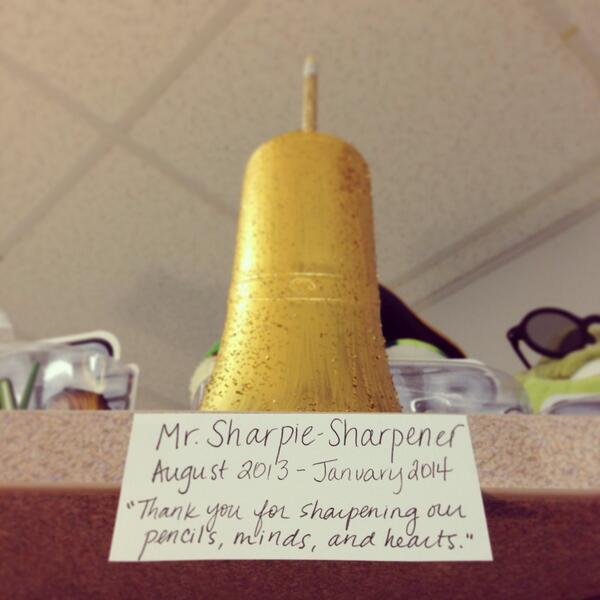 Mr. Sharpie-Sharpener
August 2013 - January 2014
"Thank you for sharpening our
pencils, minds, and hearts."